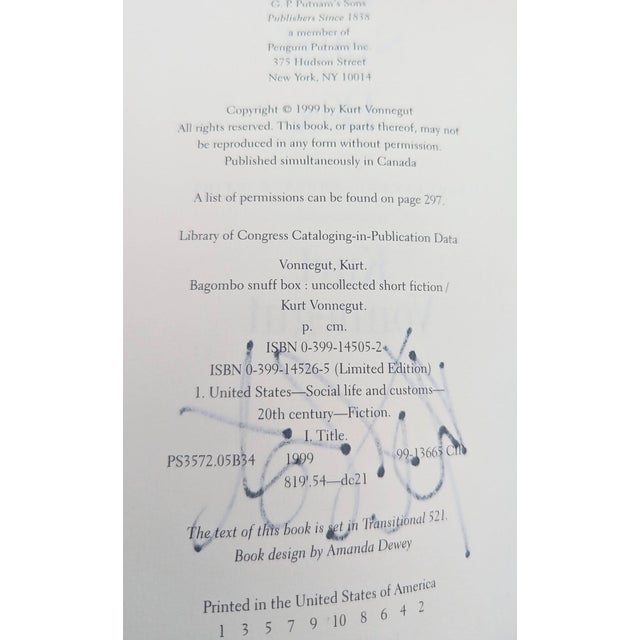 G. P. Putnam's Sons
Publishers Since 1838
a member of
Penguin Putnam Inc.
375 Hudson Street
New York, NY 10014
Copyright © 1999 by Kurt Vonnegut
All rights reserved. This book, or parts thereof, may not
be reproduced in any form without permission.
Published simultaneously in Canada
A list of permissions can be found on page 297.
Library of Congress Cataloging-in-Publication Data
Vonnegut, Kurt.
Bagombo snuff box : uncollected short fiction /
Kurt Vonnegut.
p. cm.
ISBN 0-399-14505-2
ISBN 0-399-14526-5 (Limited Edition)
1. United States—Social life and customs—
20th century—Fiction.
I. Title.
PS3572.05B34 1999 99-13665 CIP
819'.54—dc21
The text of this book is set in Transitional 521.
Book design by Amanda Dewey
Printed in the United States of America
1 3 5 7 9 10 8 6 4 2